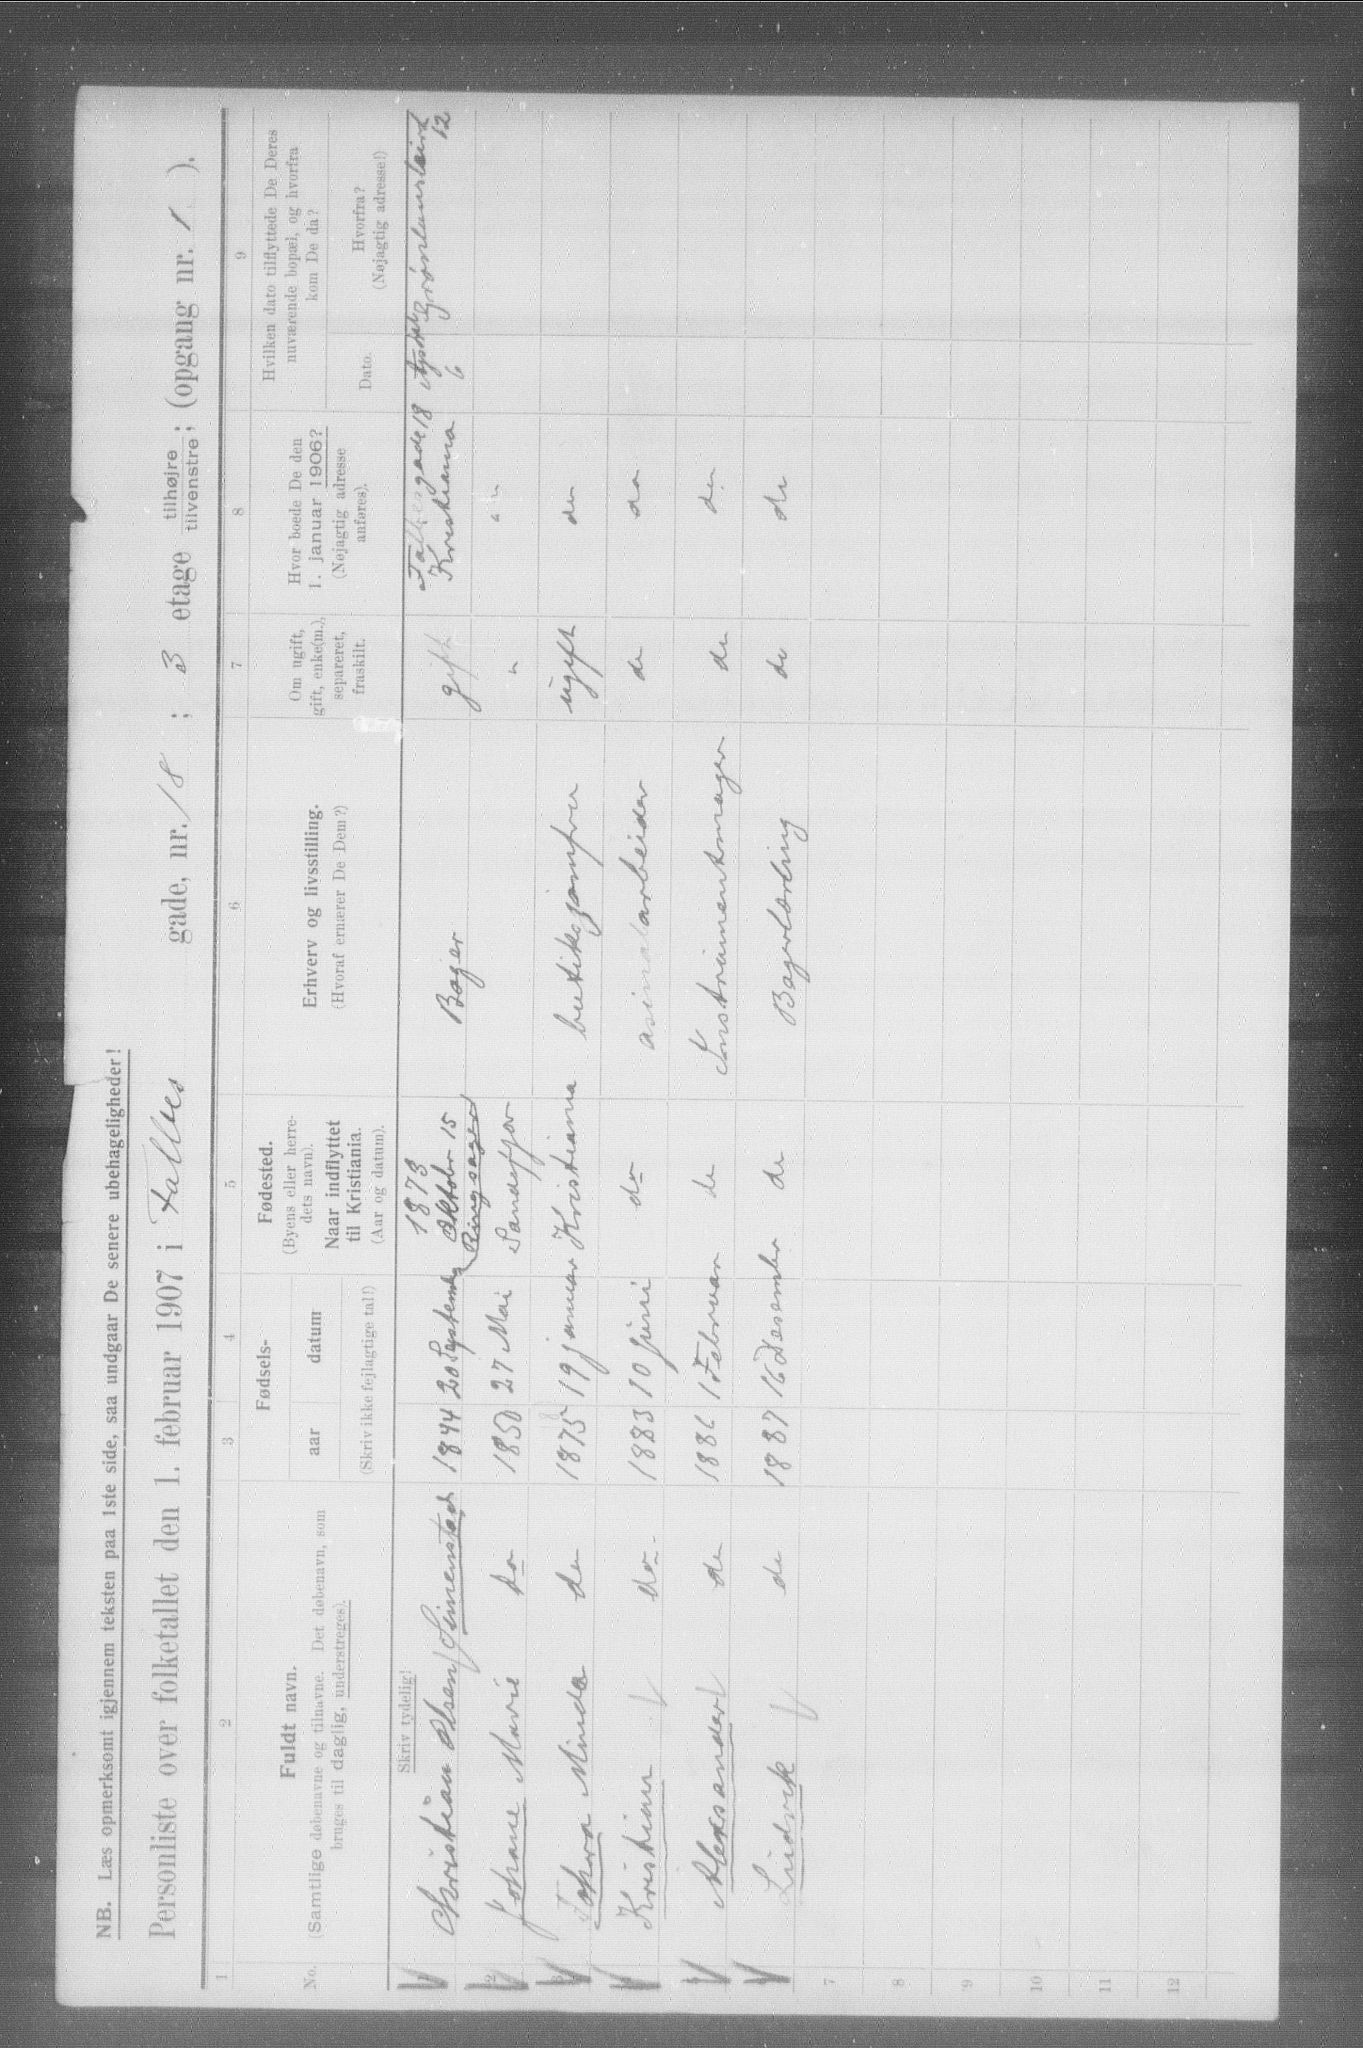 NB. Læs opmerksomt igjennem teksten paa 1ste side, saa undgaar De senere ubehageligheder!
Personliste over folketallet den 1. februar 1907 i Falbes gade, nr. 18; 3 etage tilhøjre/tilvenstre; (opgang nr. 1 ).
1 2 3 4 5 6 7 8 9
No.
Fuldt navn.
(Samtlige døbenavne og tilnavne. Det døbenavn, som
bruges til daglig, understreges).
Fødsels-
aar datum
(Skriv ikke fejlagtige tal!)
Fødested.
(Byens eller herre-
dets navn).
Naar indflyttet
til Kristiania.
(Aar og datum).
Erhverv og livsstilling.
(Hvoraf ernærer De Dem?)
Om ugift,
gift, enke(m.),
separeret,
fraskilt.
Hvor boede De den
1. januar 1906?
(Nøjagtig adresse
anføres).
Hvilken dato tilflyttede De Deres
nuværende bopæl, og hvorfra
kom De da?
Dato.
Hvorfra?
(Nøjagtig adresse!)
Skriv tydelig!
1873
Oktober 15
1 Christian Olsen Simenstad 1844 20 September Ringsager Bager gift Falbes gade 18 Kristiania 6 Grönlandsleiret 12
2 Johane Marie do 1850 27 Mai Sandefjor " "
3 Tokra Minda do 1875 19 januar Kristiania butiksjomfru ugift do
4 Kristian do. 1883 10 Juni do arbeider do do
5 Aleksander do 1886 1 Februar do Instrumentmager do do
6 Ludvik do 1887 16 Desember do Bagerlærling do do
7
8
9
10
11
12